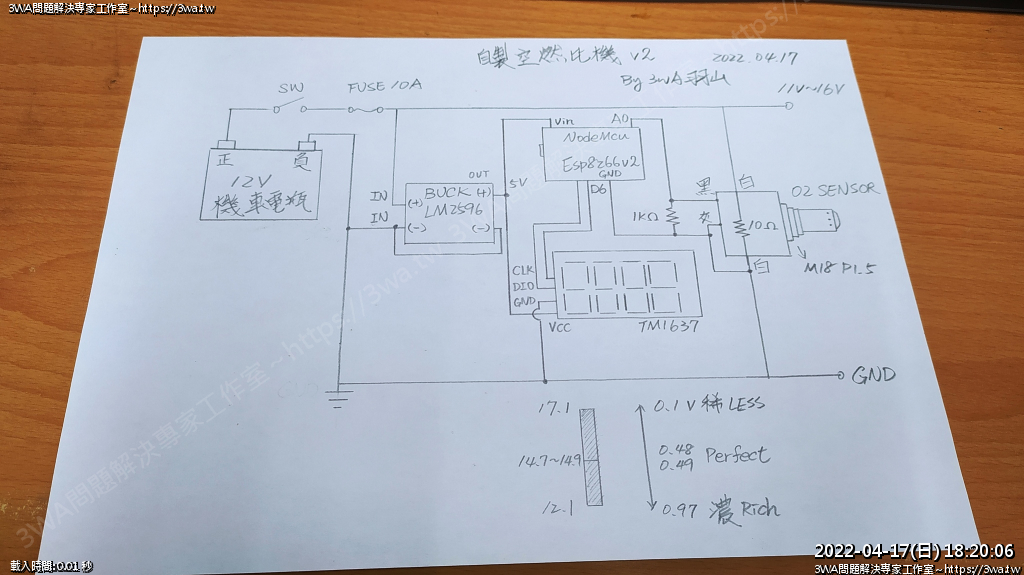 3WA問題解決專家工作室~https://3wa.tw
自製空燃比機 V2
2022.04.17
By 3WA 羽山
SW
FUSE 10A
11V~16V
正
負
12V
機車電瓶
OUT
IN
IN
(+)
BUCK (+)
LM2596
(-)
(-)
5V
Vin
A0
NodeMcu
Esp8266v2
GND
D6
1KΩ
黑
白
灰
10Ω
白
O2 SENSOR
M18 P1.5
CLK
DIO
GND
VCC
TM1637
GND
17.1
14.7~14.9
12.1
0.1V 稀 LESS
0.48
0.49
Perfect
0.97 濃 Rich
3WA問題解決專家工作室~https://3wa.tw
載入時間:0.01 秒
2022-04-17(日) 18:20:06
3WA問題解決專家工作室~https://3wa.tw